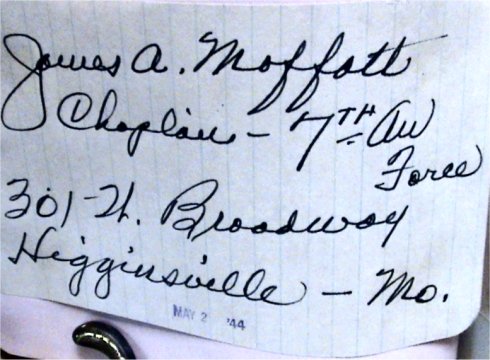 James A. Moffatt
Chaplain - 7TH Air
Force
301-W. Broadway
Higginsville - Mo.
MAY 2 '44